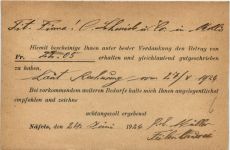 Tit. Firma! C. Schmidt & Co. in
Hiermit bescheinige Ihnen unter bester Verdankung den Betrag von
Fr. 22.05 erhalten und gleichlautend gutgeschrieben
zu haben. Laut Rechnung vom 27/5 1924
Bei vorkommendem weiteren Bedarfe halte mich Ihnen angelegentlichst
empfohlen und zeichne
achtungsvoll ergebenst
Näfels, den 24. Juni 1924